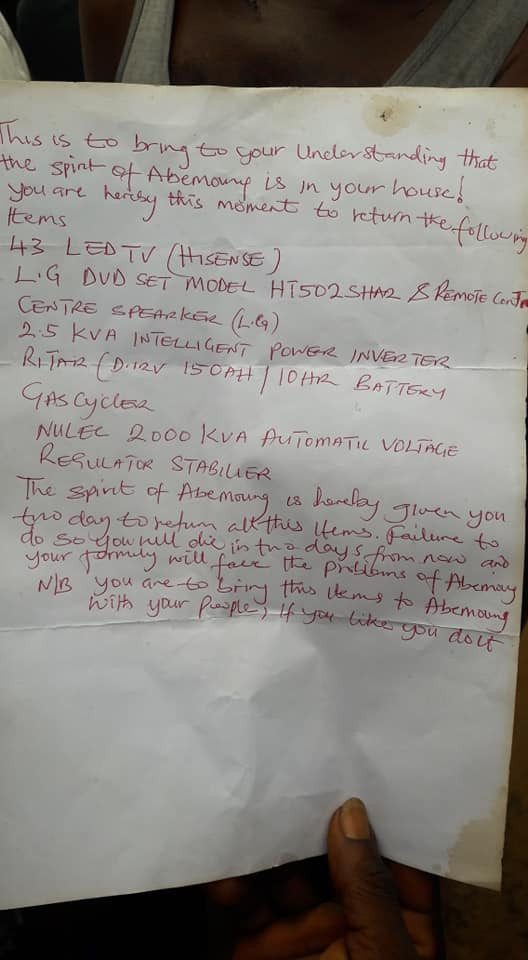 This is to bring to your Understanding that
the spirit of Abemoung is in your house!
You are hereby this moment to return the following
Items
43 LED TV (HISENSE)
L.G DVD SET MODEL HT502SHA2 & REMOTE
CENTRE SPEARKER (L.G)
2.5 KVA INTELLIGENT POWER INVERTER
RITAR (D.12V 150AH / 10HR BATTERY
GAS CYCLER
NULEC 2000 KVA AUTOMATIC VOLTAGE
REGULATOR STABILIER
The spirit of Abemoung is hereby given you
two day to return all this Items. Failure to
do so you will die in two days from now and
your family will face the problems of Abemoung
N/B you are to bring this items to Abemoung
with your people, If you like you do it